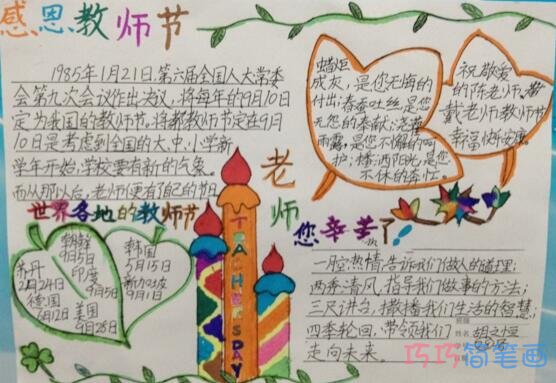 感恩教师节
1985年1月21日,第六届全国人大常委
会第九次会议作出决议,将每年的9月10日
定为我国的教师节。将教师节定在9月
10日是考虑到全国的大、中、小学新
学年开始,学校要有新的气象。
而从那以后,老师便有了自己的节日
世界各地的教师节
朝鲜
9月5日
印度
9月5日
美国
9月28日
苏丹
2月24日
德国
6月12日
韩国
5月15日
新加坡
9月1日
TEACHER'S DAY
老师
您辛苦了!
蜡炬
成灰,是您无悔的
付出;春蚕吐丝,是您
无怨的奉献;浇灌
雨露,是您不懈的呵
护;夕阳光,是您
不休的奔忙。
祝敬爱
的陈老师、戴老师教师节
幸福快乐安康。
一腔热情,告诉我们做人的道理;
两香清风,指导我们做事的方法;
三尺讲台,播撒我们生活的智慧;
四季轮回,带领我们
走向未来。
姓名
巧巧简笔画